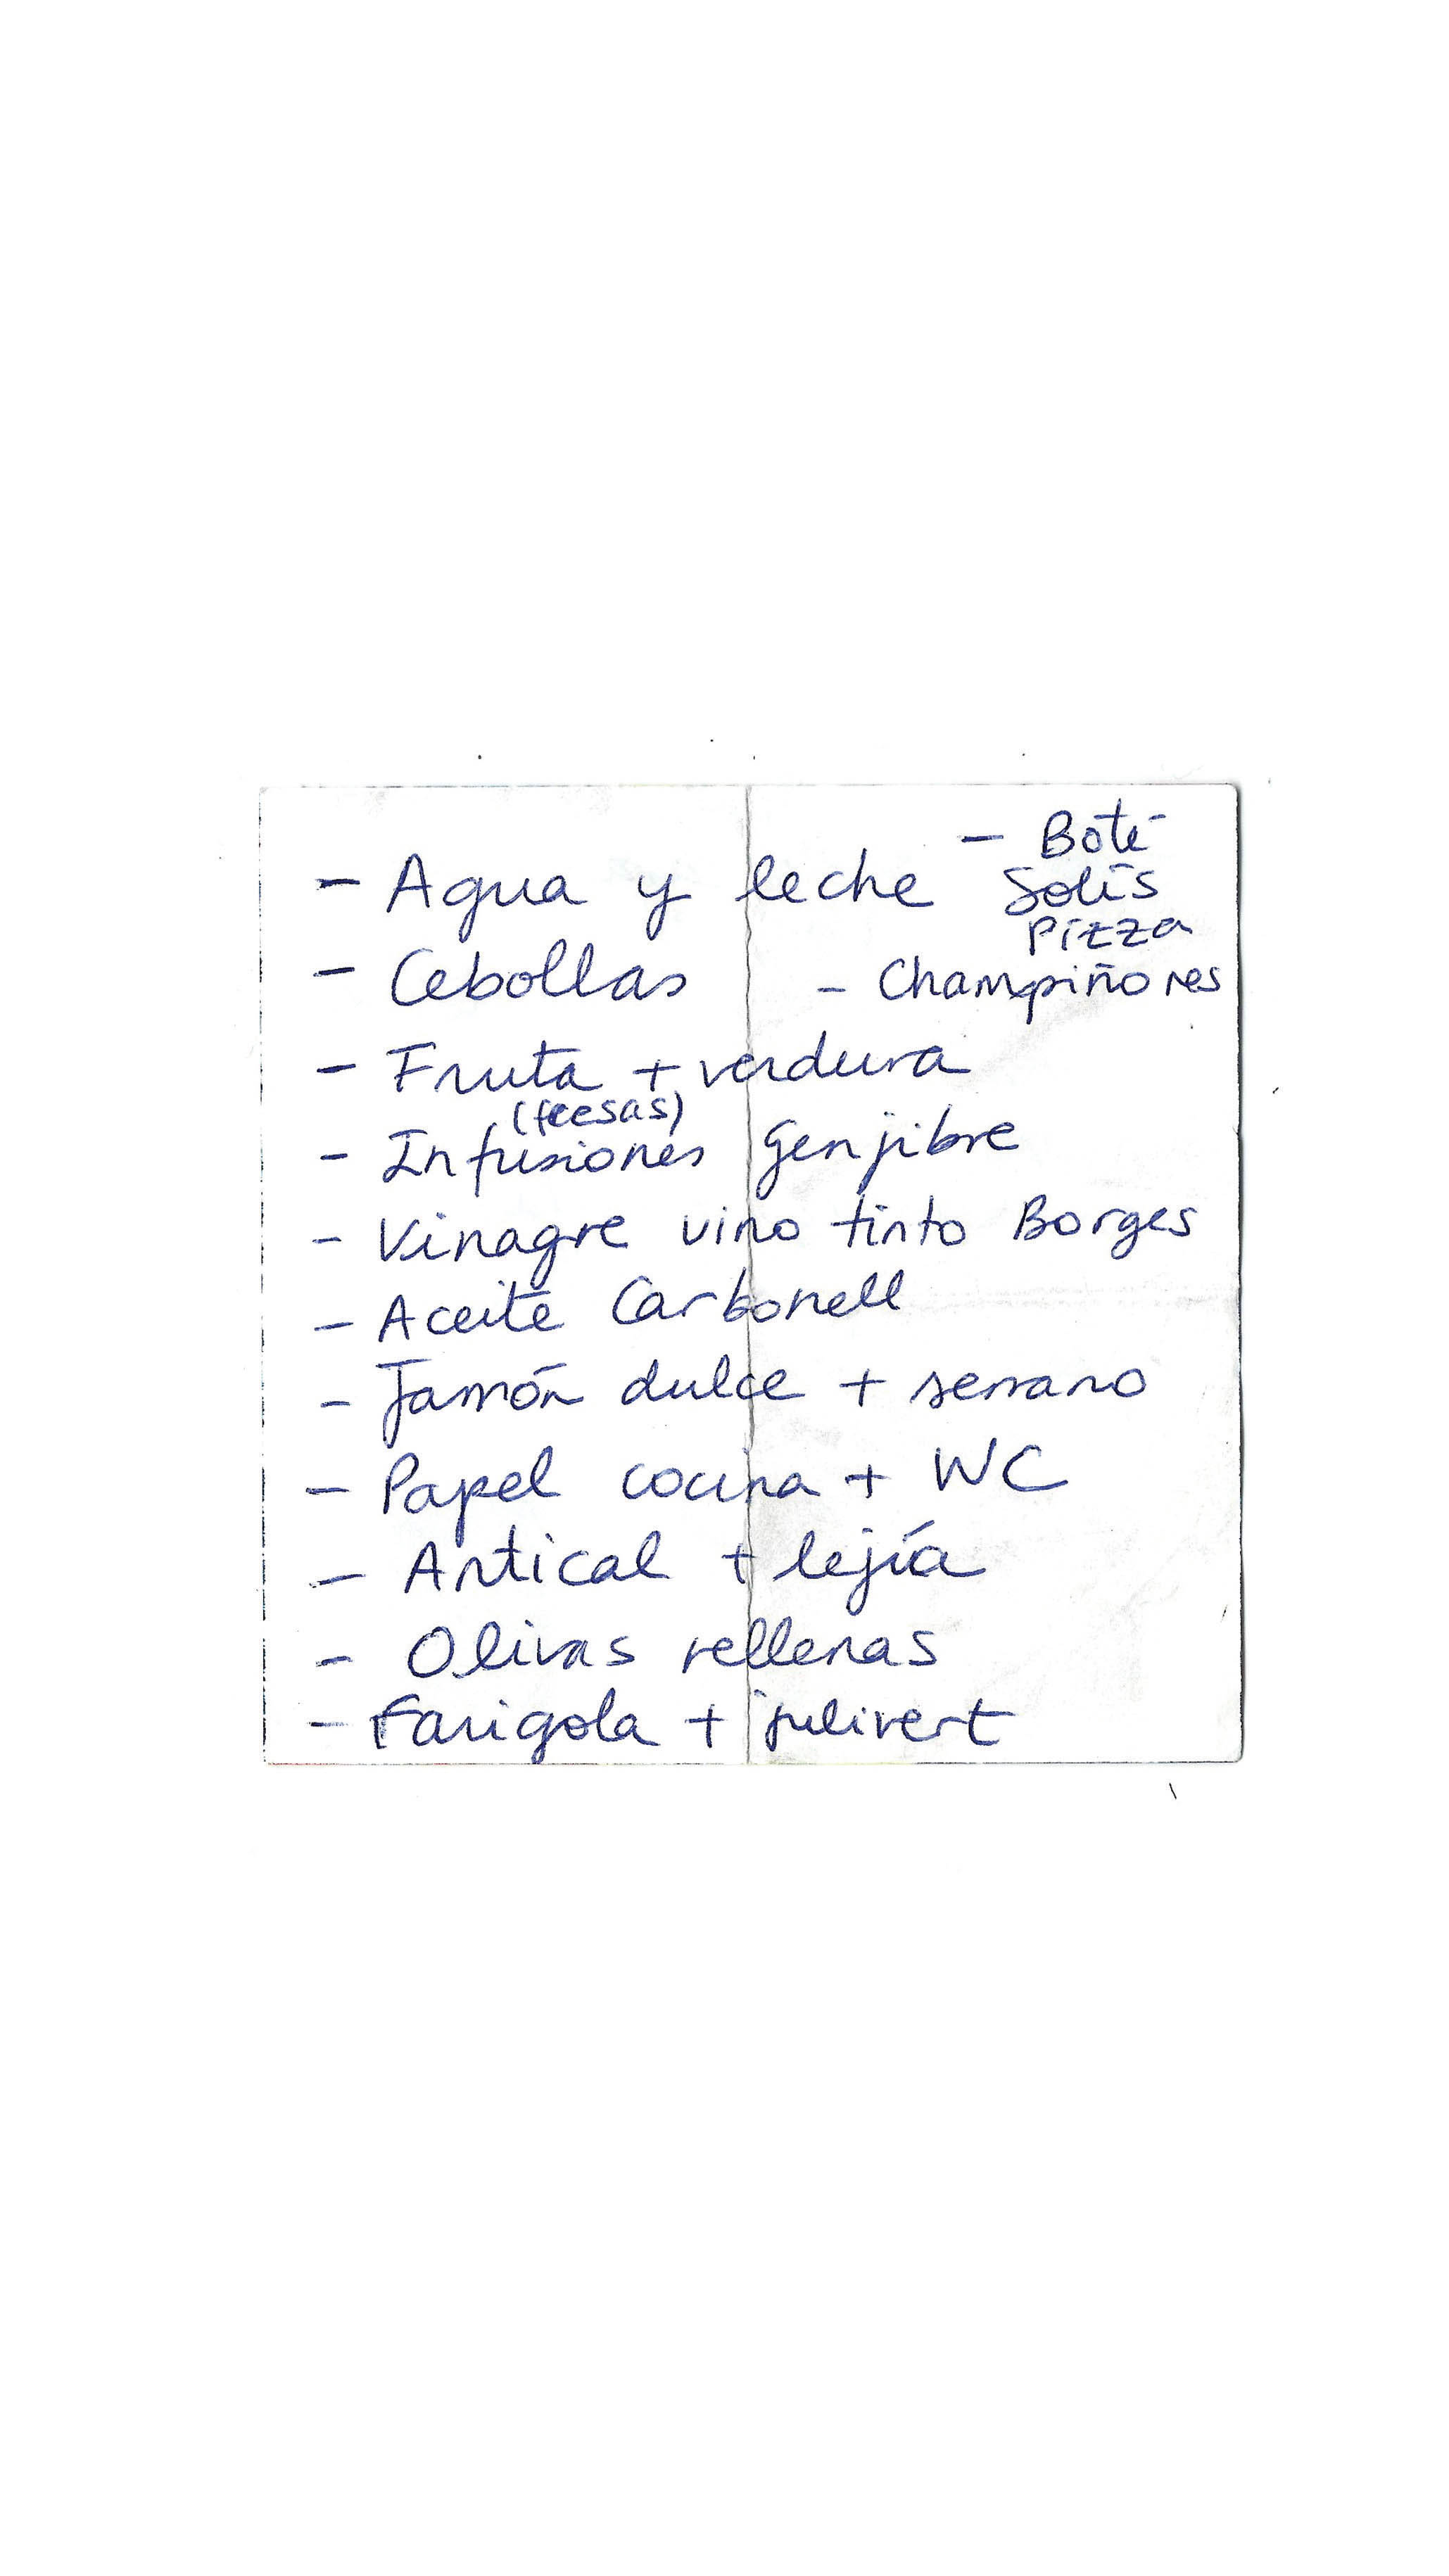 - Bote
- Agua y leche Solís
Pizza
- Cebollas - Champiñones
- Fruta + verdura
(fresas)
- Infusiones Genjibre
- Vinagre vino tinto Borges
- Aceite Carbonell
- Jamón dulce + serrano
- Papel cocina + WC
- Antical + lejía
- Olivas rellenas
- Farigola + julivert